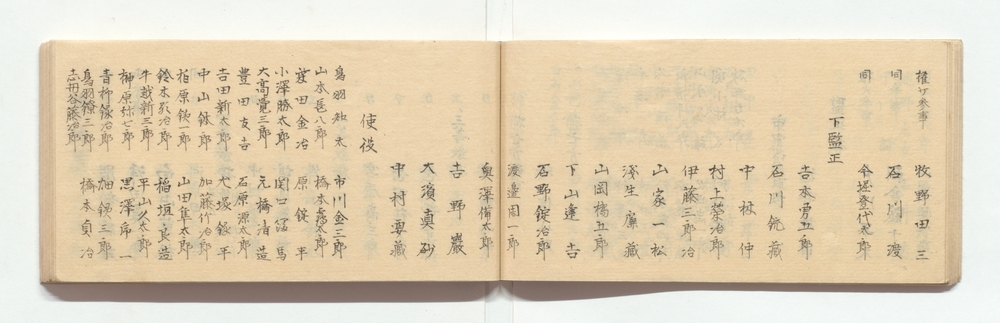 權少参事 牧野田三
同 石川十渡
同 今堀登代太郎
下監正
吉本勇五郎
石川銃藏
中根一仲
村上榮治郎
伊藤三郎治
山家一松
淺生廉藏
山岡橘五郎
下山逢吉
石野錠治郎
渡邉周一郎
奥澤備太郎
吉野巖
大濱真砂
中村要藏
使役
鳥羽知太 市川金三郎
山本長八郎 橋本
金治 原錠平
小澤勝太郎 関口 馬
大高寛三郎 元橋清造
豊田友吉 石原源太郎
吉田新太郎 大塚銀平
中山銕郎 加藤竹治郎
柏原銕一郎 山田隼太郎
鈴木 治郎 稲垣良造
牛 新三郎 平山久太郎
榊原弥七郎 黒澤常一
青柳 治郎 畑銕三郎
鳥羽鐐三郎 橋本貞治
志冊谷藤治郎